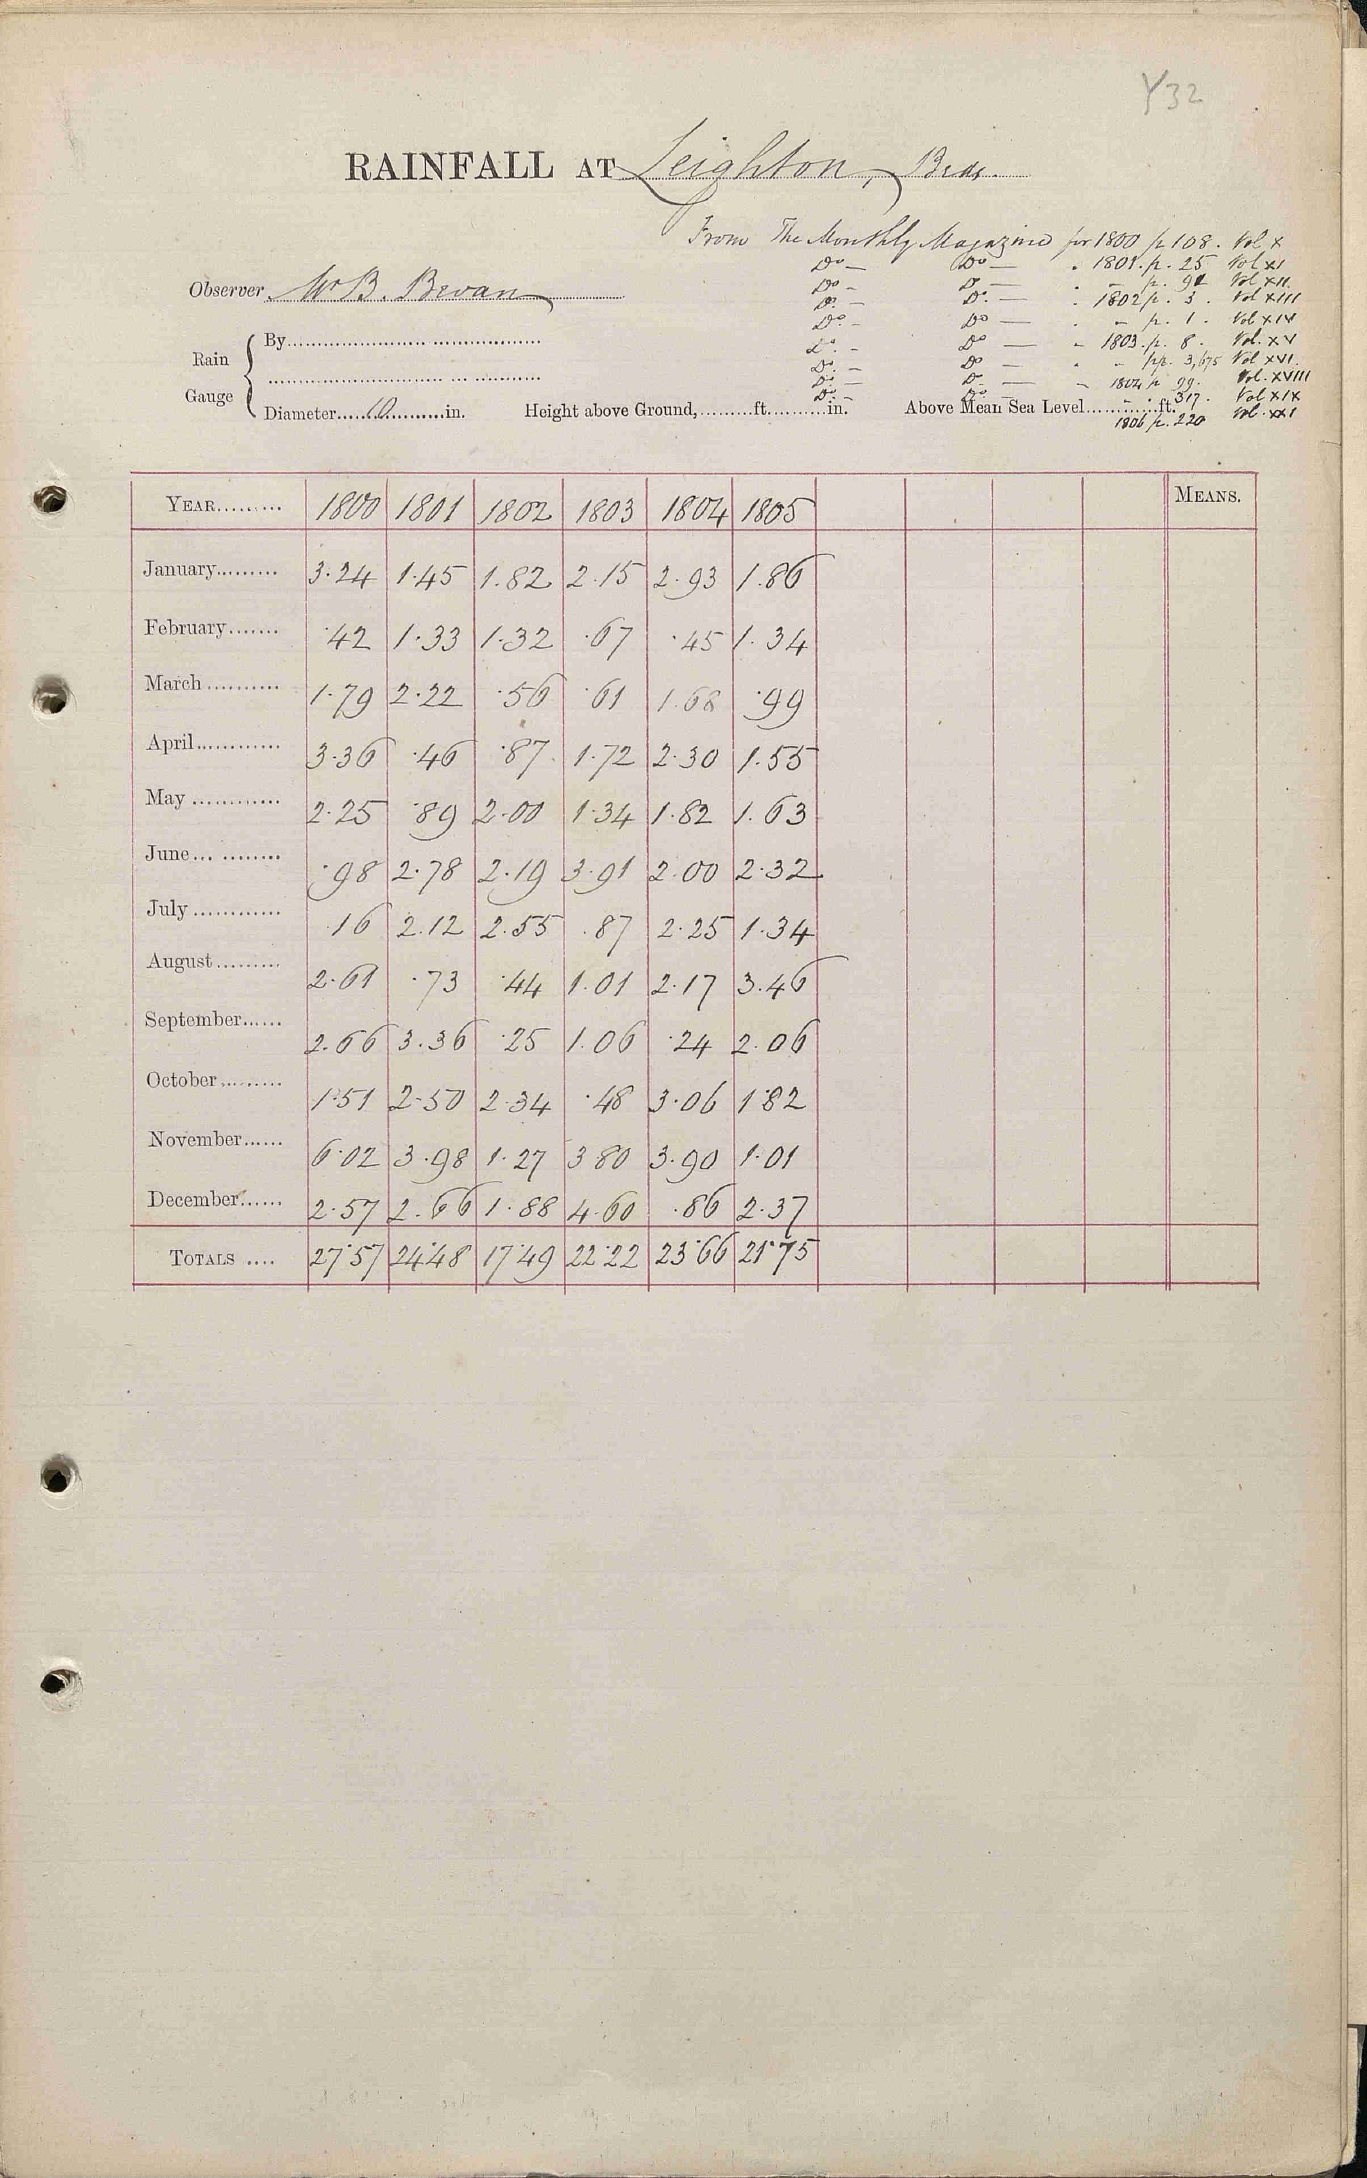 Y32
RAINFALL AT Leighton, Beds.
From The Monthly Magazine for 1800 p 108. Vol X
Do — Do — . 1801. p. 25 Vol XI
Do - Do — . - p. 92 Vol XII
Observer Mr B. Bevan
Do. — Do. — . 1802 p. 3. Vol XIII
Do. - Do — . - p. 1. Vol XIV
Do. - Do — - 1803. p. 8. Vol. XV
Do. — Do — . - pp. 3, Vol XVI
Do. — Do. — - 1804 p 99. Vol. XVIII
Do. - Do. - - . 317. Vol XIX
1806 p. 220 Vol. XXI
Rain Gauge
By
Diameter 10 in. Height above Ground, ft. in. Above Mean Sea Level ft.
YEAR 1800 1801 1802 1803 1804 1805 MEANS.
January 3.24 1.45 1.82 2.15 2.93 1.86
February .42 1.33 1.32 .67 .45 1.34
March 1.79 2.22 .56 .61 1.68 .99
April 3.36 .46 .87 1.72 2.30 1.55
May 2.25 .89 2.00 1.34 1.82 1.63
June .98 2.78 2.19 3.91 2.00 2.32
July .16 2.12 2.55 .87 2.25 1.34
August 2.61 .73 .44 1.01 2.17 3.46
September 2.66 3.36 .25 1.06 .24 2.06
October 1.51 2.50 2.34 .48 3.06 1.82
November 6.02 3.98 1.27 3 80 3.90 1.01
December 2.57 2.66 1.88 4.60 .86 2.37
TOTALS 27.57 24.48 17.49 22.22 23.66 21.75